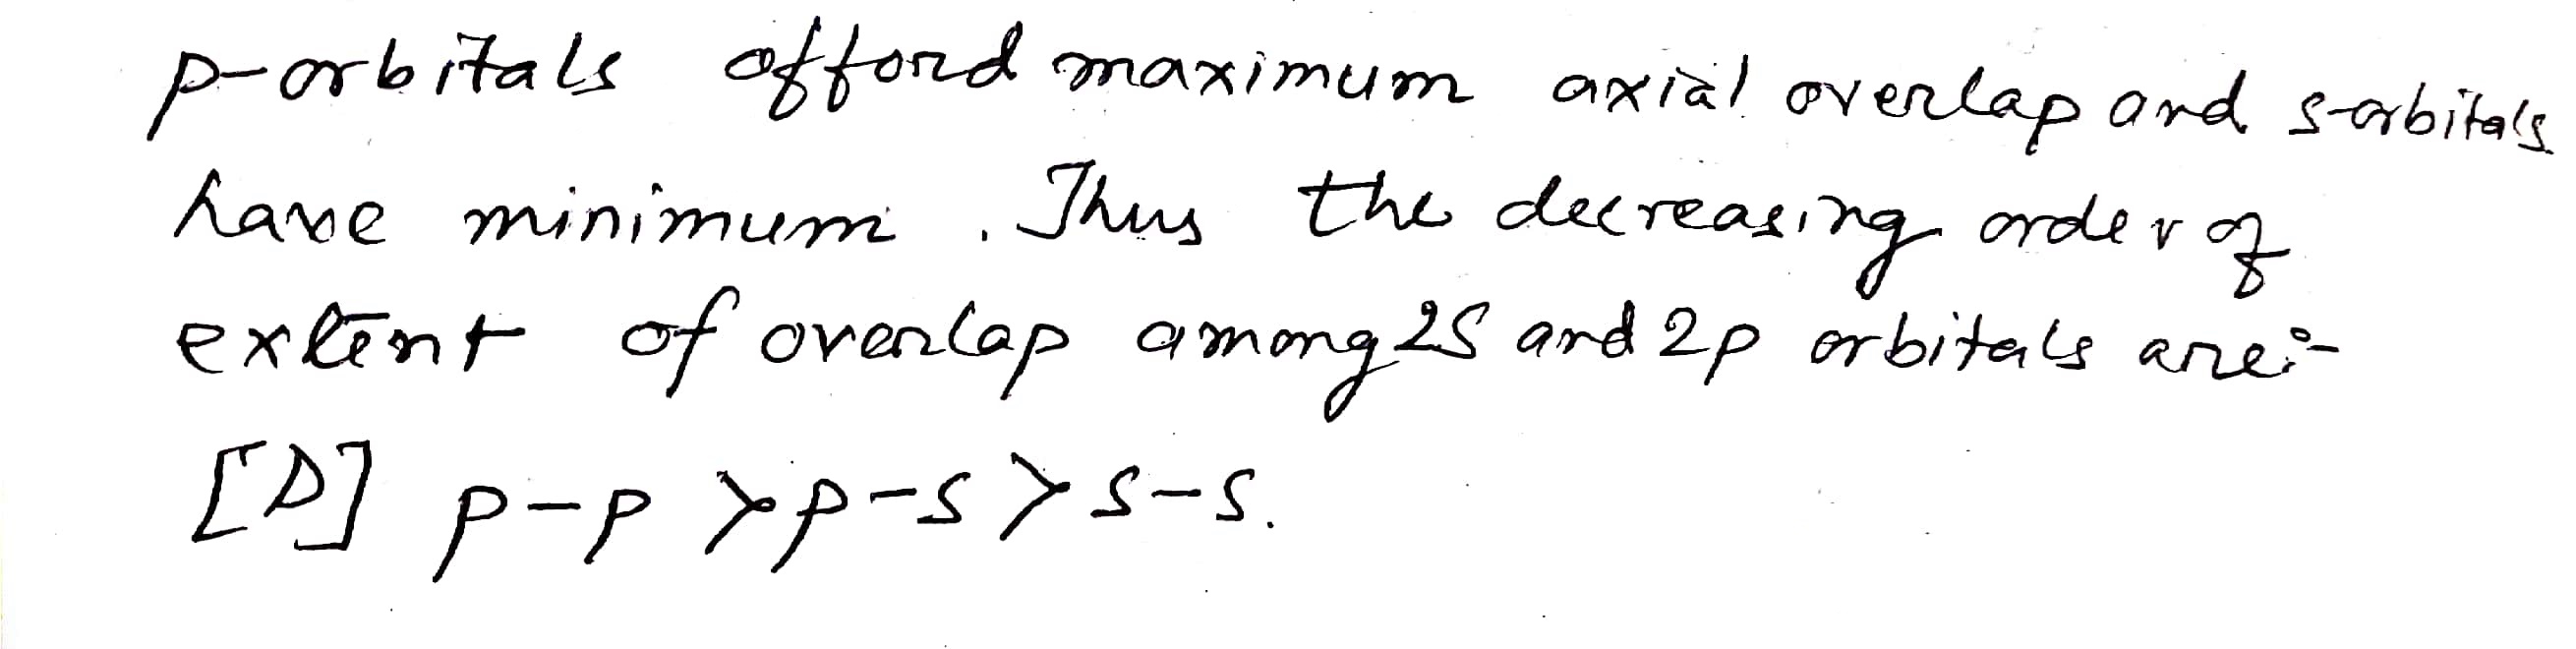 p-orbitals afford maximum axial overlap and s-orbitals
have minimum. Thus the decreasing order of
extent of overlap among 2s and 2p orbitals are:-
[D] p-p > p-s > s-s.